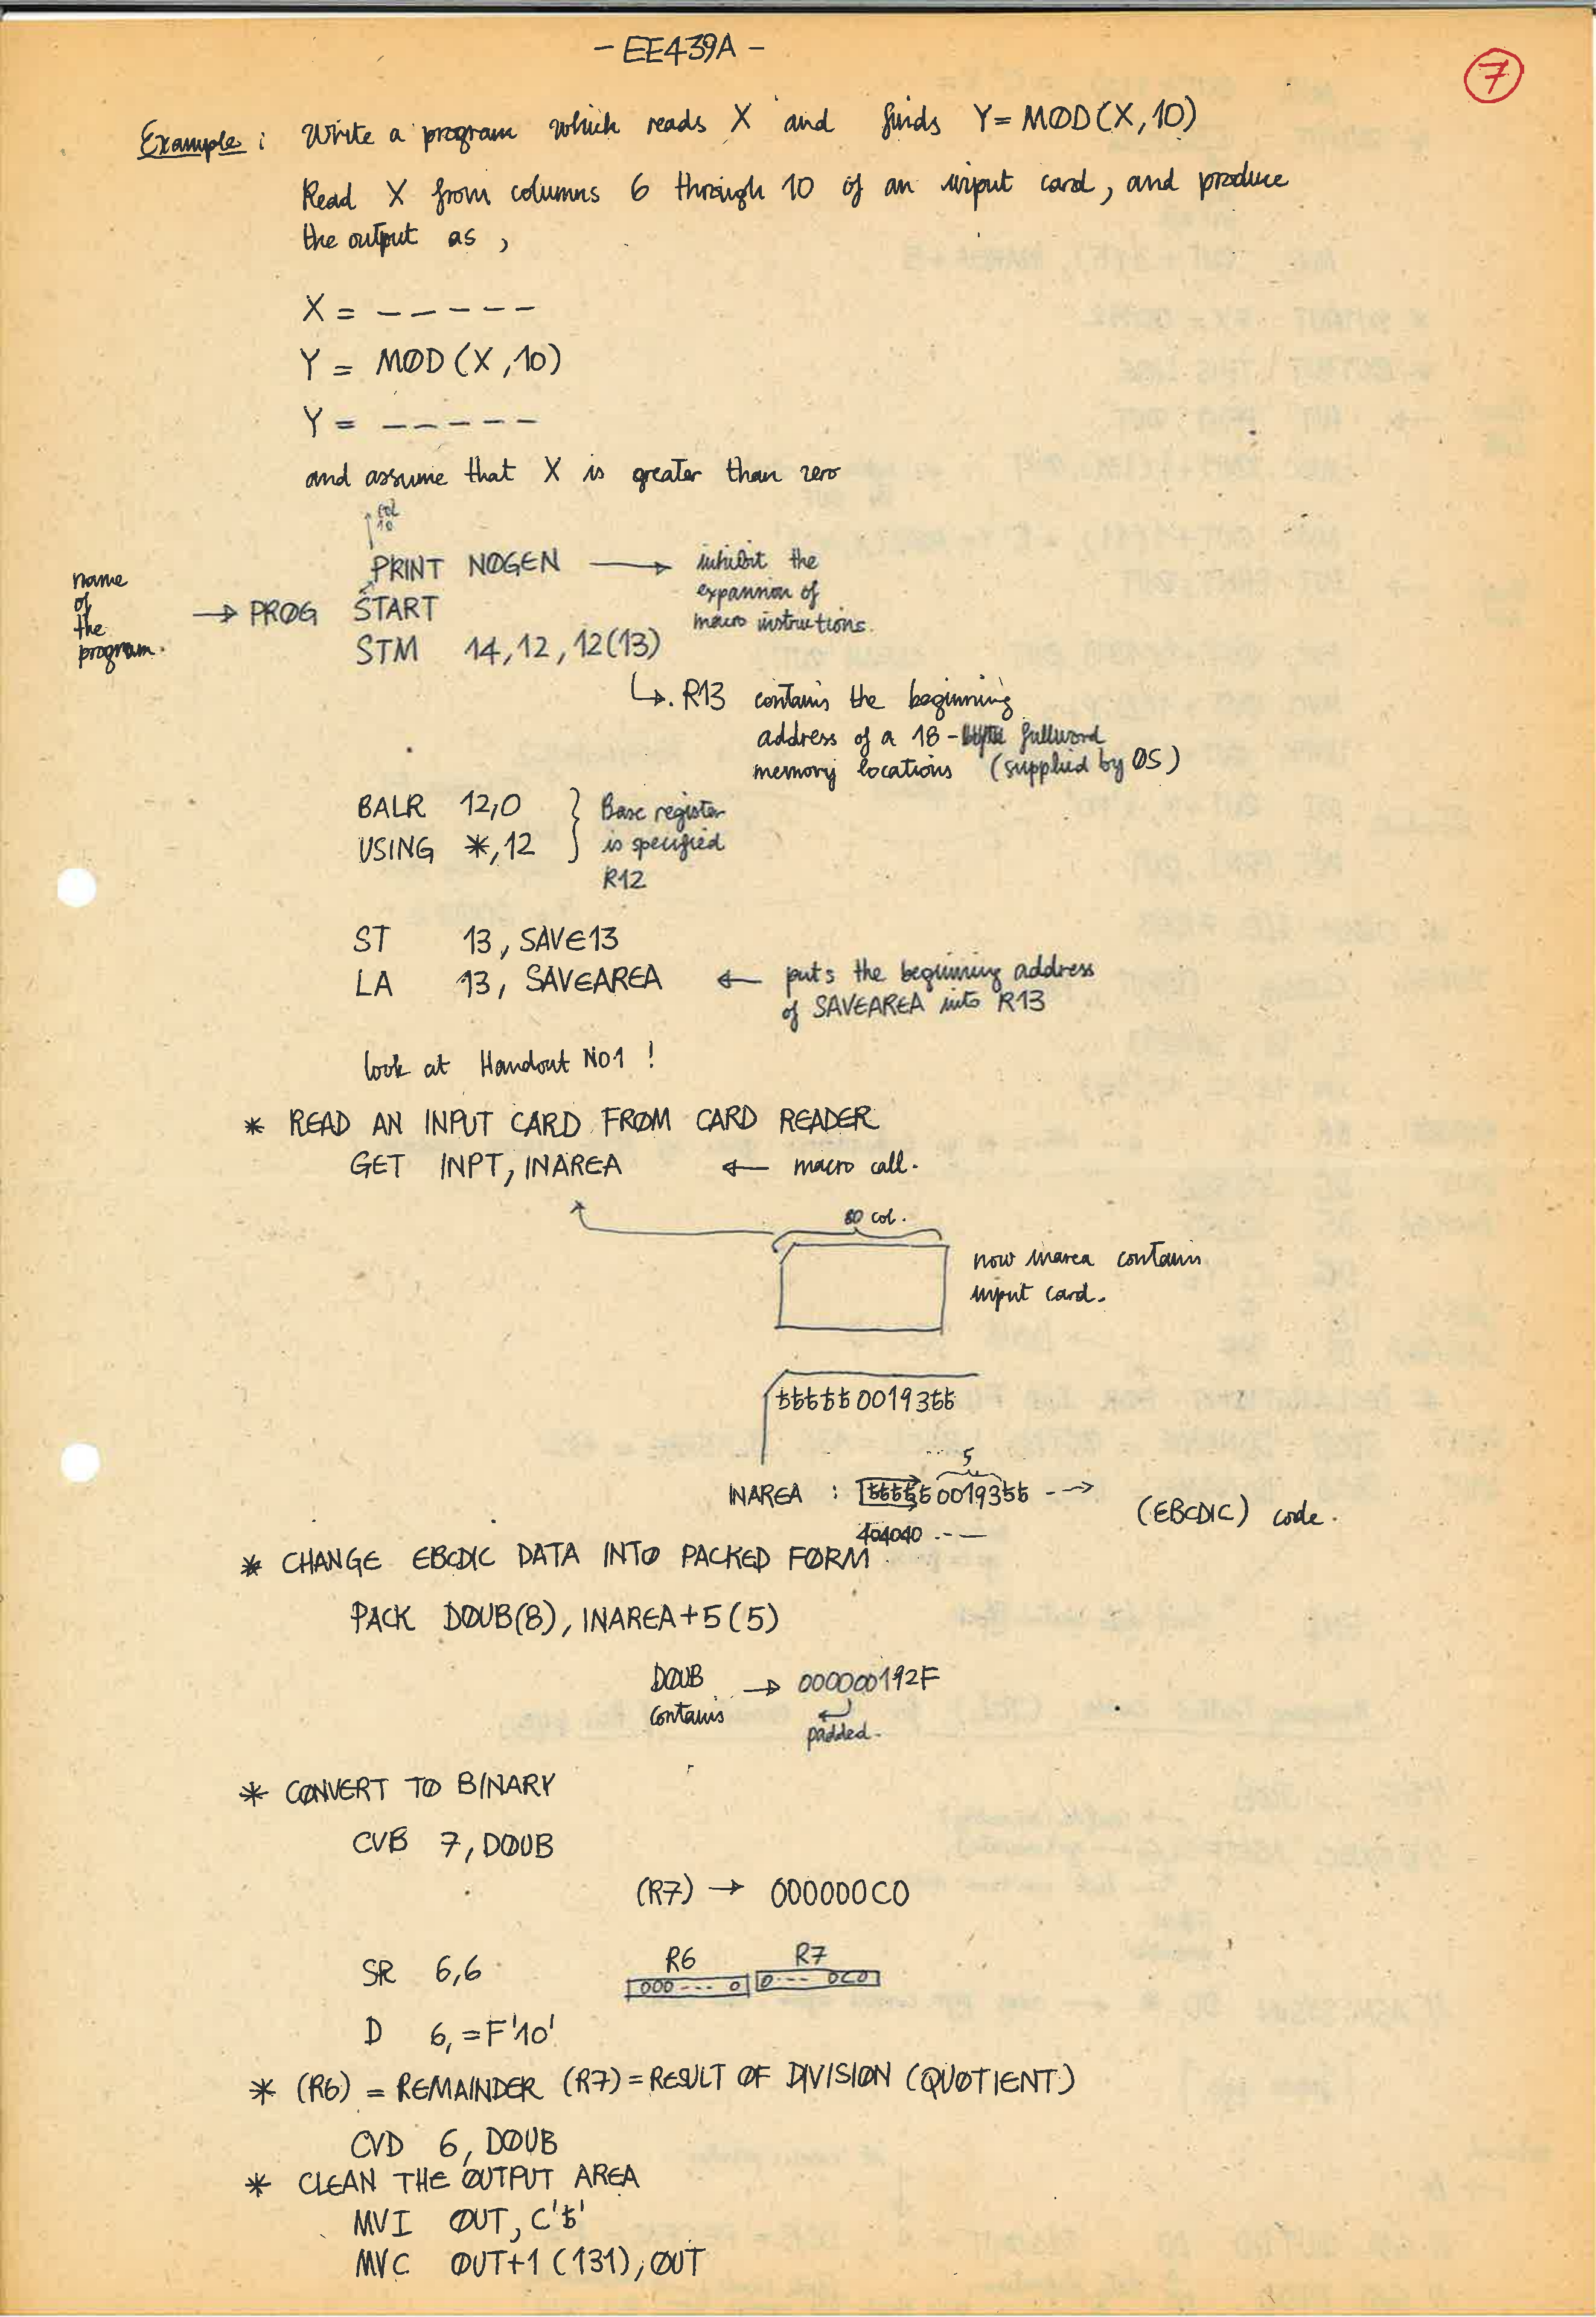 - EE439A -
7
Example : Write a program which reads X and finds Y= MØD(X,10)
Read X from columns 6 through 10 of an input card, and produce
the output as ,
X = - - - - -
Y = MØD (X,10)
Y = - - - - -
and assume that X is greater than zero
col
10
PRINT NØGEN → inhibit the
expansion of
macro instructions.
name
of
the
program.
→ PRØG START
STM 14,12,12(13)
↳. R13 contains the beginning
address of a 18-fullword
memory locations (supplied by ØS)
BALR 12,0
USING *,12
} Base register
is specified
R12
ST 13, SAVE13
LA 13, SAVEAREA ← puts the beginning address
of SAVEAREA into R13
look at Handout No1 !
* READ AN INPUT CARD FRØM CARD READER
GET INPT, INAREA ← macro call.
80 col.
now inarea contains
input card.
ƀƀƀƀƀ00193ƀƀ
5
INAREA : ƀƀƀƀƀ00193ƀƀ - ->
404040 .- —
(EBCDIC) code.
* CHANGE EBCDIC DATA INTØ PACKED FØRM.
PACK DØUB(8), INAREA+5(5)
DØUB → 000000192F
contains
padded.
* CØNVERT TØ BINARY
CVB 7, DØUB
(R7) → 000000C0
SR 6,6
R6 R7
000 --- 0 0 --- 0C0
D 6,=F'10'
* (R6) = REMAINDER (R7)=RESULT ØF DIVISIØN (QUØTIENT)
CVD 6, DØUB
* CLEAN THE ØUTPUT AREA
MVI ØUT, C'ƀ'
MVC ØUT+1 (131), ØUT